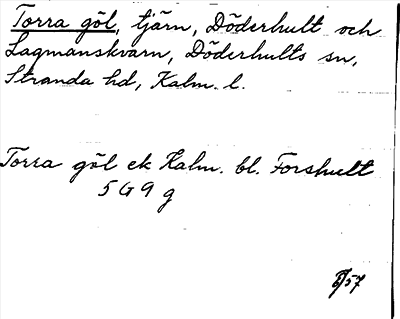 Torra göl, tjärn, Döderhult och
Lagmanskvarn, Döderhults sn,
Stranda hd, Kalm. l.
Torra göl ek Kalm. bl. Forshult
5 G 9 g
/57